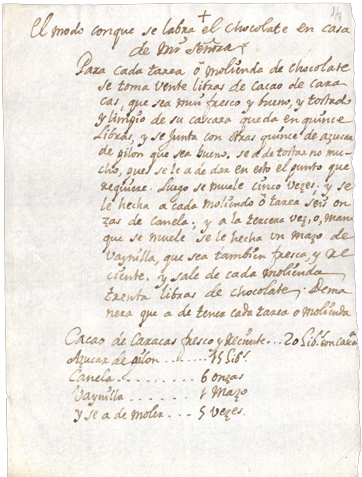 +
El modo conque se labra el chocolate en casa
de mi señora
Para cada tarea ô molienda de chocolate
se toma vente libras de cacao de cara
cas, que sea mui fresco y bueno, y tostado
y limpio de su cascara queda en quince
libras, y se junta con otras quince de azucar
de pilon que sea bueno, se a de tostar no mu
cho, que se le a de dar en esto el punto que
requiere. Luego se muele cinco vezes; y se
le hecha a cada moliendo ô tarea seis on
zas de canela; y a la tercera vez, o, mano
que se muele se le hecha un mazo de
vaynilla, que sea tambien fresca, y re
ciente, y sale de cada molienda
trenta libras de chocolate. Dema
nera que a de tener cada tarea o molienda
Cacao de Caracas fresco y reciente... 20 lib.s con cascara
Azucar de pilon..... 15 Lib.s
Canela...... 6 onzas
Vaynilla.... 1 Mazo
y se a de moler.... 5 vezes.